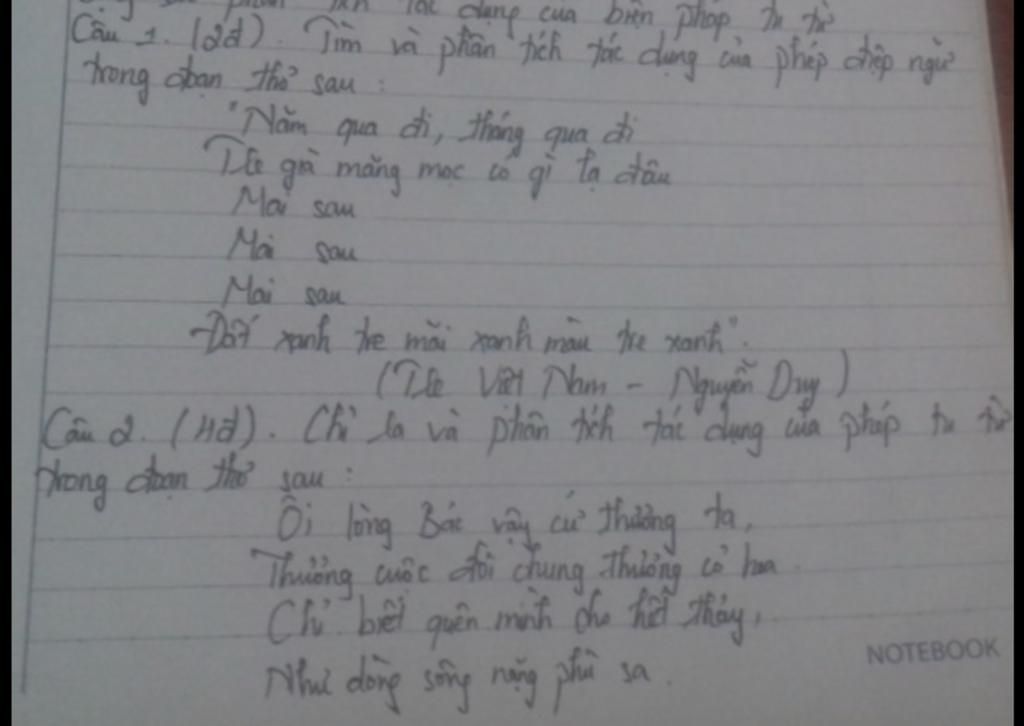 tích tác dụng của biện pháp tu từ
Câu 1. (2đ). Tìm và phân tích tác dụng của phép điệp ngữ
trong đoạn thơ sau :
"Năm qua đi, tháng qua đi
Tre già măng mọc có gì lạ đâu
Mai sau
Mai sau
Mai sau
Đất xanh tre mãi xanh màu tre xanh".
(Tre Việt Nam - Nguyễn Duy)
Câu 2. (4đ). Chỉ ra và phân tích tác dụng của phép tu từ
trong đoạn thơ sau :
Ôi lòng Bác vậy cứ thương ta,
Thương cuộc đời chung thương cỏ hoa.
Chỉ biết quên mình cho hết thảy,
Như dòng sông nặng phù sa.
NOTEBOOK